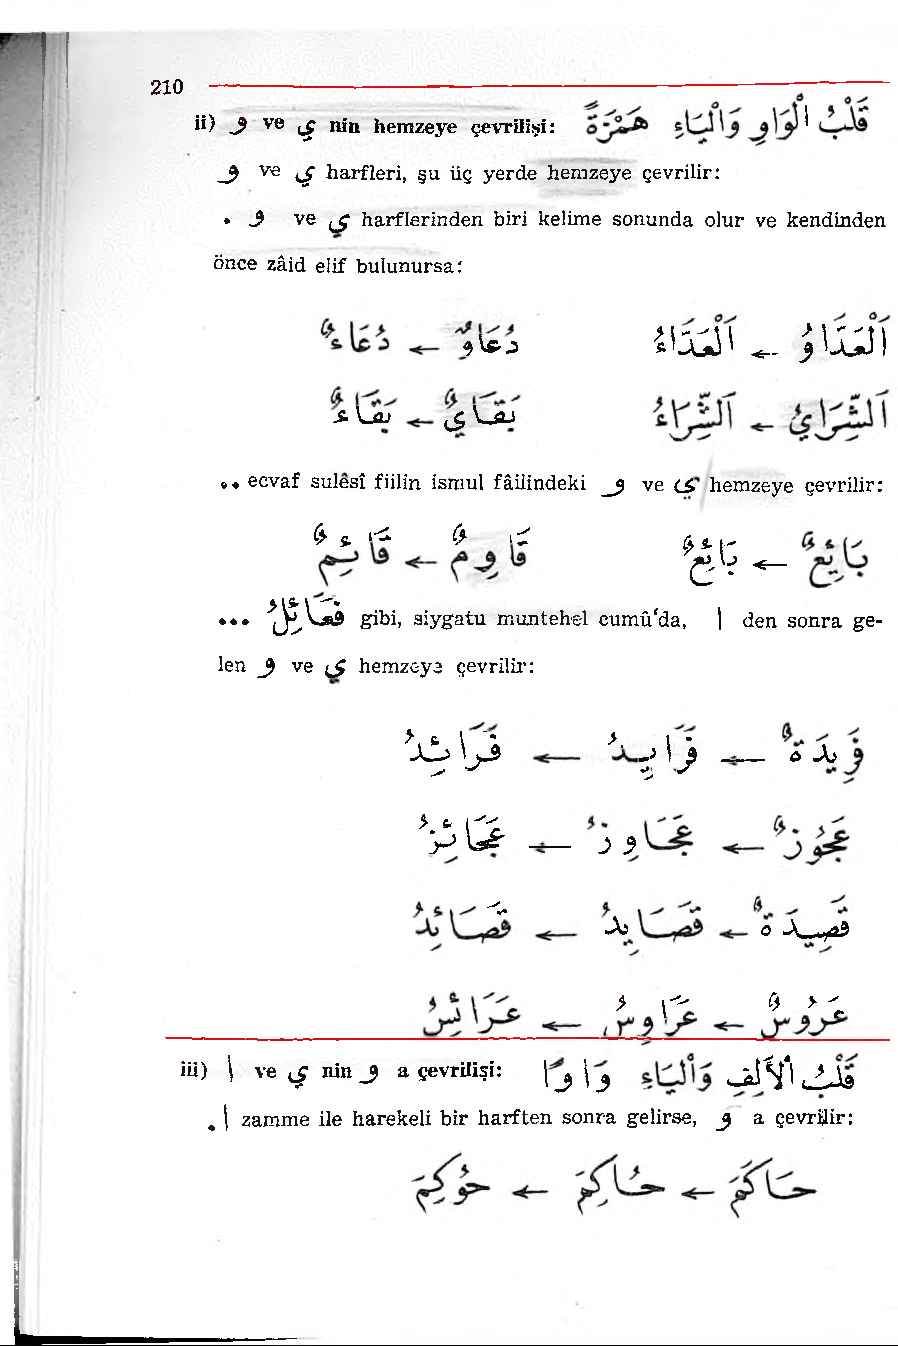 210
ii) و ve ي nin hemzeye çevrilişi: قَلْبُ الْوَاوِ وَالْيَاءِ هَمْزَةً
و ve ي harfleri, şu üç yerde hemzeye çevrilir:
• و ve ي harflerinden biri kelime sonunda olur ve kendinden
önce zâid elif bulunursa:
اَلْعَدَّاوُ ← اَلْعَدَّاءُ دُعَاوٌ ← دُعَاءٌ
اَلشِّرَايُ ← اَلشِّرَاءُ بَقَايٌ ← بَقَاءٌ
•• ecvaf sulêsî fiilin ismul fâilindeki و ve ي hemzeye çevrilir:
بَايِعٌ ← بَائِعٌ قَاوِمٌ ← قَائِمٌ
••• فَعَائِلُ gibi, siygatu muntehel cumû'da, ا den sonra ge-
len و ve ي hemzeye çevrilir:
فَرِيدَةٌ ← فَرَايِدُ ← فَرَائِدُ
عَجُوزٌ ← عَجَاوِزُ ← عَجَائِزُ
قَصِيدَةٌ ← قَصَايِدُ ← قَصَائِدُ
عَرُوسٌ ← عَرَاوِسُ ← عَرَائِسُ
iii) ا ve ي nin و a çevrilişi: قَلْبُ الْأَلِفِ وَالْيَاءِ وَاوًا
. ا zamme ile harekeli bir harften sonra gelirse, و a çevrilir:
حَاكَمَ ← حُاكِمَ ← حُوكِمَ